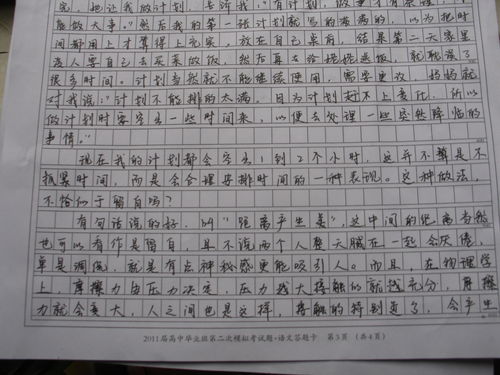 完，她让我做计划，告诉我："有计划，做事才有条理，才
能做大事。"然后我的第一张计划就写的满满的，以为把时
间都用上才算得上充实，放在自己桌前，结果第二天家里
老人要自己去买菜做饭，然后再去给姥姥送饭，就耽误了
很多时间。计划当然就不能继续使用，需要更改，妈妈就
对我说："计划不能排的太满，因为计划赶不上变化，所以
做计划时要空出一些时间来，以便去处理一些突然降临的
事情。"
现在我的计划都会空出1到2个小时，这并不算是不
抓紧时间，而是会合理安排时间的一种表现。这种做法，
不恰似于留白吗？
有句话说的好，叫"距离产生美"，这中间的距离当然
也可以看作是留白，且不说两个人整天腻在一起会厌倦，
单是调侃，就是有点神秘感更能吸引人。而且，在物理学
上，摩擦力由压力决定，压力越大接触的就越充分，摩擦
力就会变大，人之间也是这样，接触的特别近了，会产生
2011届高中毕业班第二次模拟考试题·语文答题卡 第3页 （共4页）